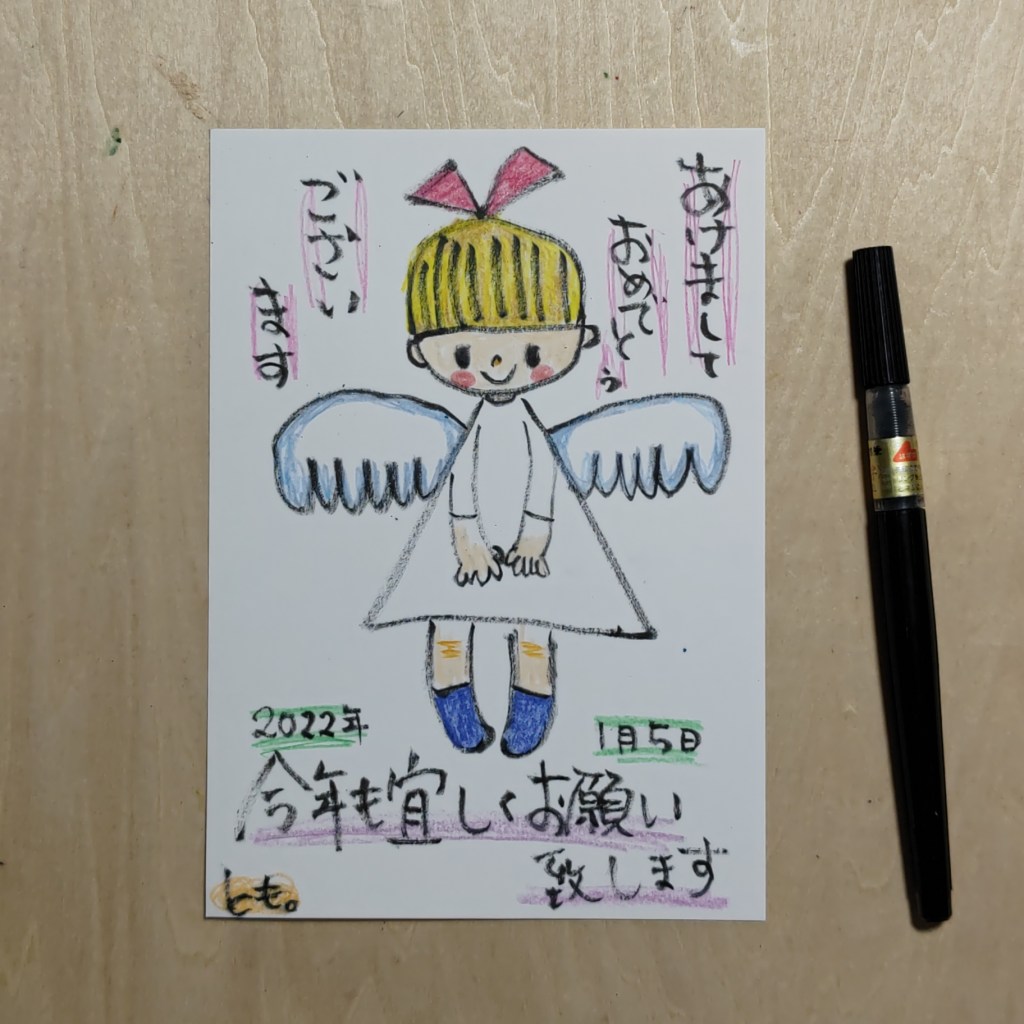 あけまして
おめでとう
ござい
ます
2022年
1月5日
今年も宜しくお願い
致します
とも。